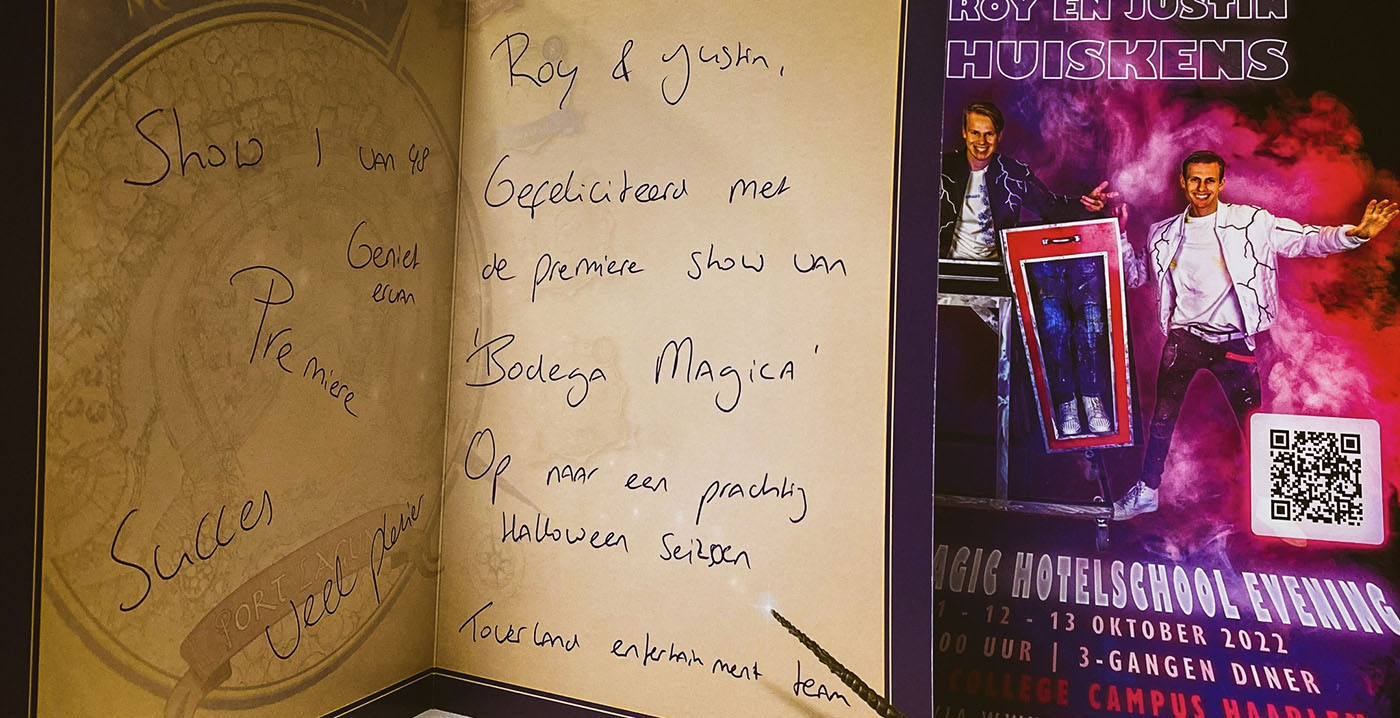 Show 1 van 48
Geniet
ervan
Premiere
Succes
Veel plezier
PORT LAGUNA
Roy & Justin,
Gefeliciteerd met
de premiere show van
'Bodega Magica'
Op naar een prachtig
Halloween seizoen
Toverland entertainment team
ROY EN JUSTIN
HUISKENS
AGIC HOTELSCHOOL EVENING
1 - 12 - 13 OKTOBER 2022
00 UUR | 3-GANGEN DINER
COLLEGE CAMPUS HAARLEM